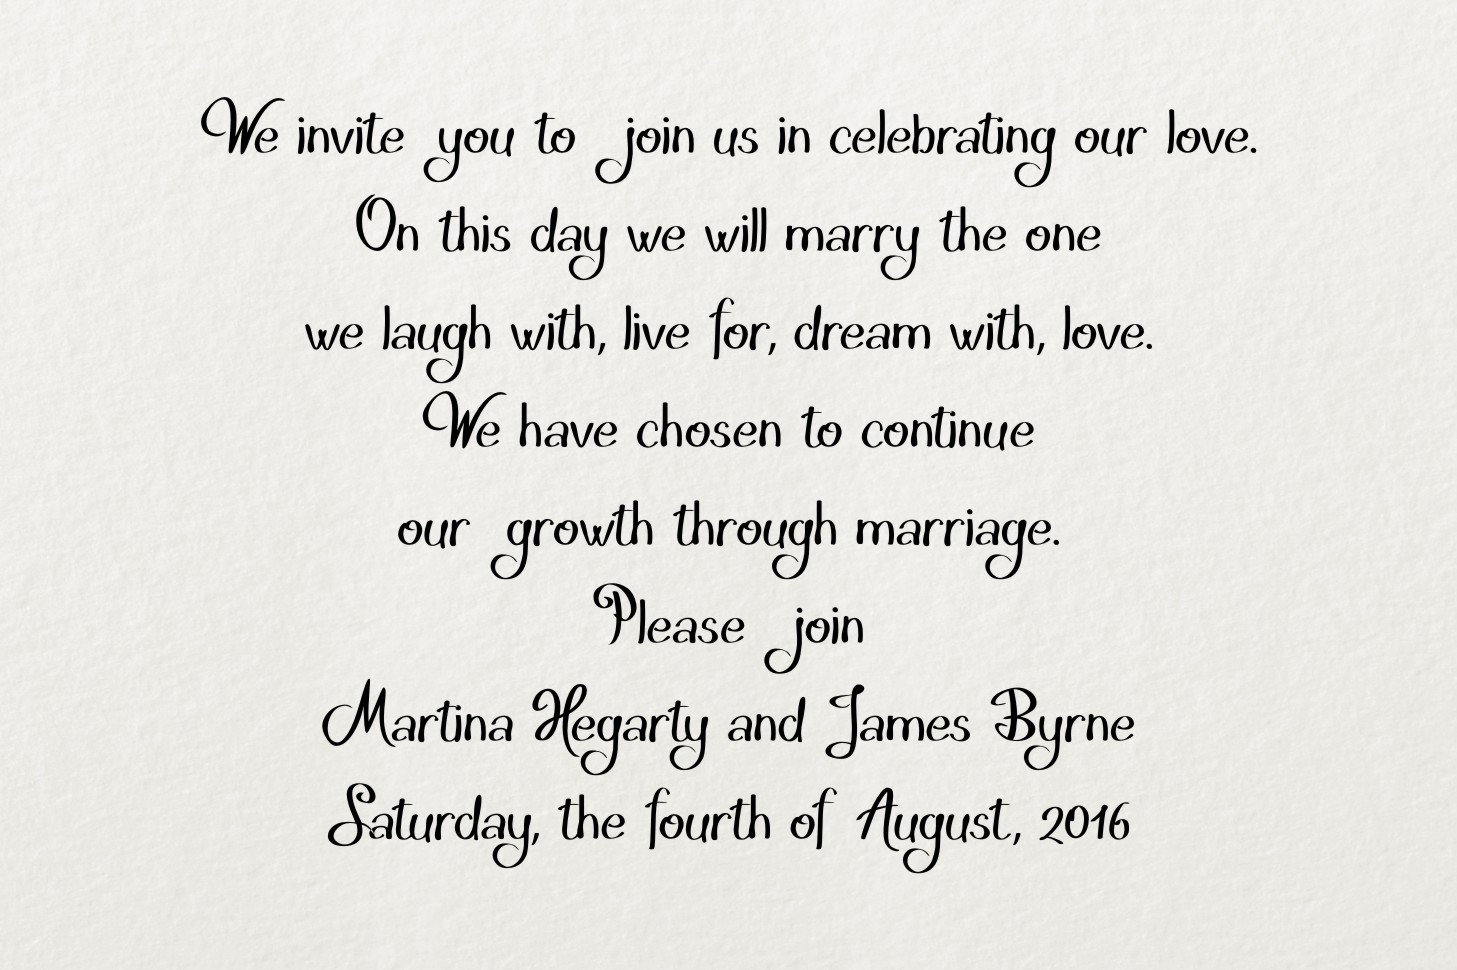 We invite you to join us in celebrating our love.
On this day we will marry the one
we laugh with, live for, dream with, love.
We have chosen to continue
our growth through marriage.
Please join
Martina Hegarty and James Byrne
Saturday, the fourth of August, 2016